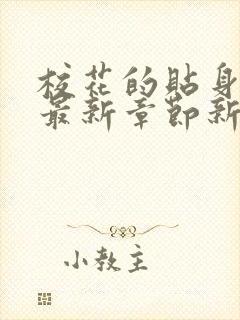 校花的贴身
最新章節新
小教主